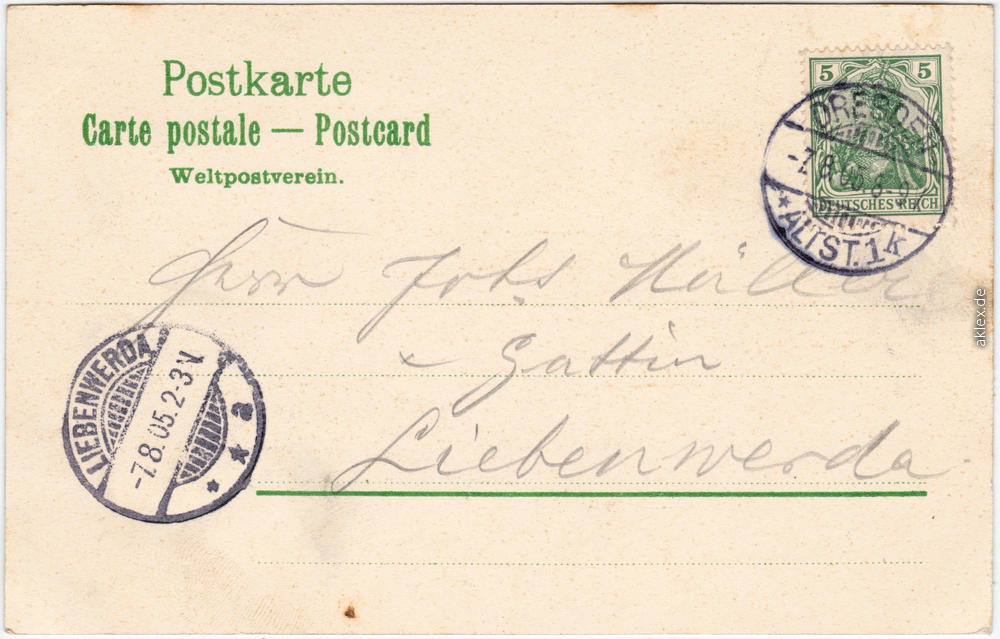 Postkarte
Carte postale — Postcard
Weltpostverein.
5 5
DEUTSCHES REICH
DRESDEN
-7.8.05. 8-9
* ALTST. 1k
Herrn Johs Müller
+ Gattin
Liebenwerda
LIEBENWERDA
-7.8.05.2-3 V
* * a
aklex.de